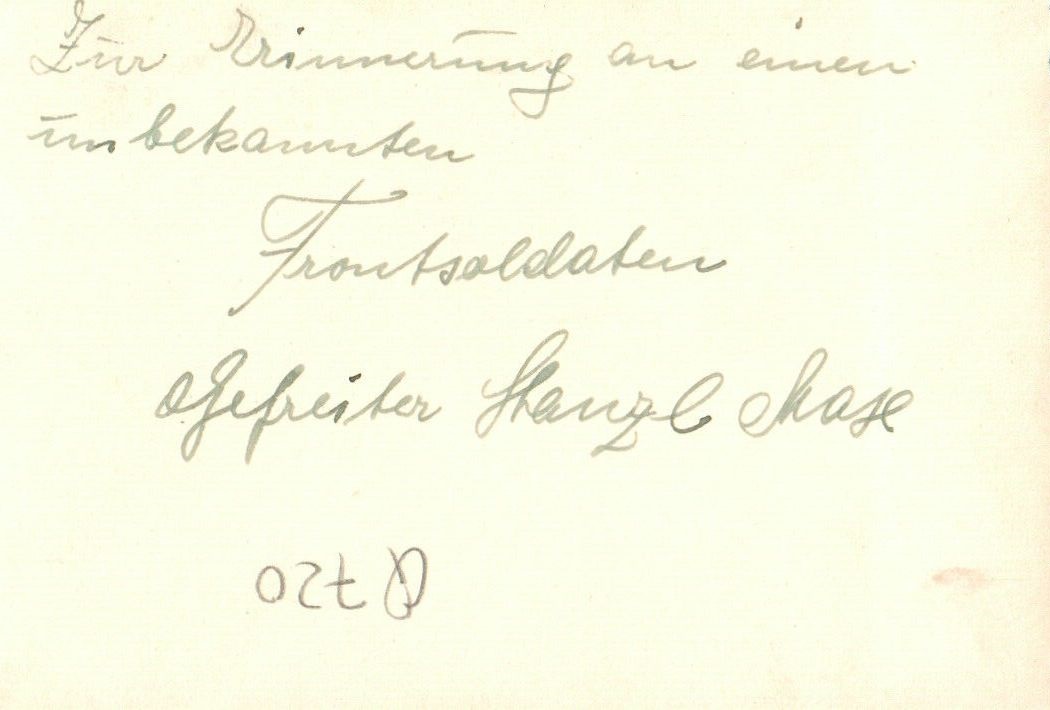 Zur Erinnerung an einen
unbekannten
Frontsoldaten
Gefreiter Stanzl Max
720